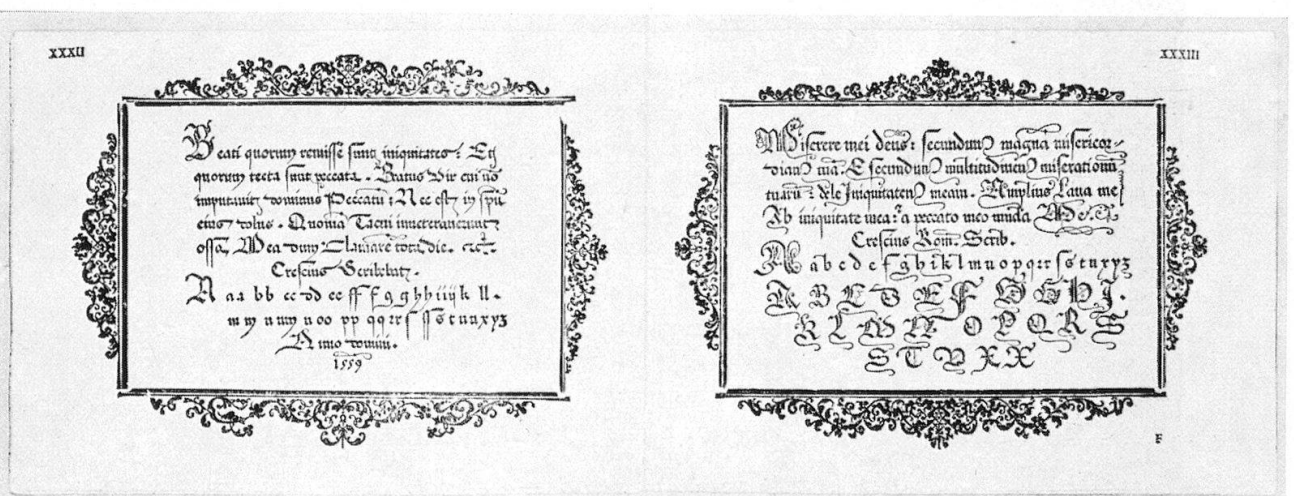 XXXII
Beati quorum remisse sunt iniquitates : Et
quorum tecta sunt peccata . Beatus Vir cui nō
imputavit dominus Peccatū : Nec est in spū
eius dolus . Quoniā Tacui inveteraverunt
ossa Mea dum Clamarē tota die .
Crescius Scribebat .
A a a b b c c d d e e ff f g g h h i i ij k ll .
m m n n o o pp q q r r ſ ſſ s t u u x y z
Anno domini .
1559
XXXIII
Miserere mei deus : secundum magna misericor-
diam tuā : Et secundum multitudinem miserationū
tuarū : dele Iniquitatem meam . Amplius Lava me
Ab iniquitate mea : a peccato meo munda
Crescius Rom . Scrib .
A a b c d e f g h i k l m n o p q r r ſ s t u x y z
A B C D E F G H I .
K L M N O P Q R S
S T V X X
F